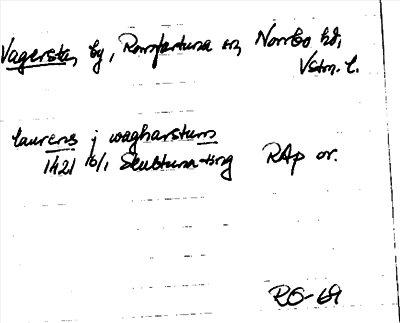 Vagersta, by, Romfartuna sn, Norrbo hd,
Vstm. l.
laurens j wagharstum
1421 10/1 Skultuna-ting RAp or.
RO-69